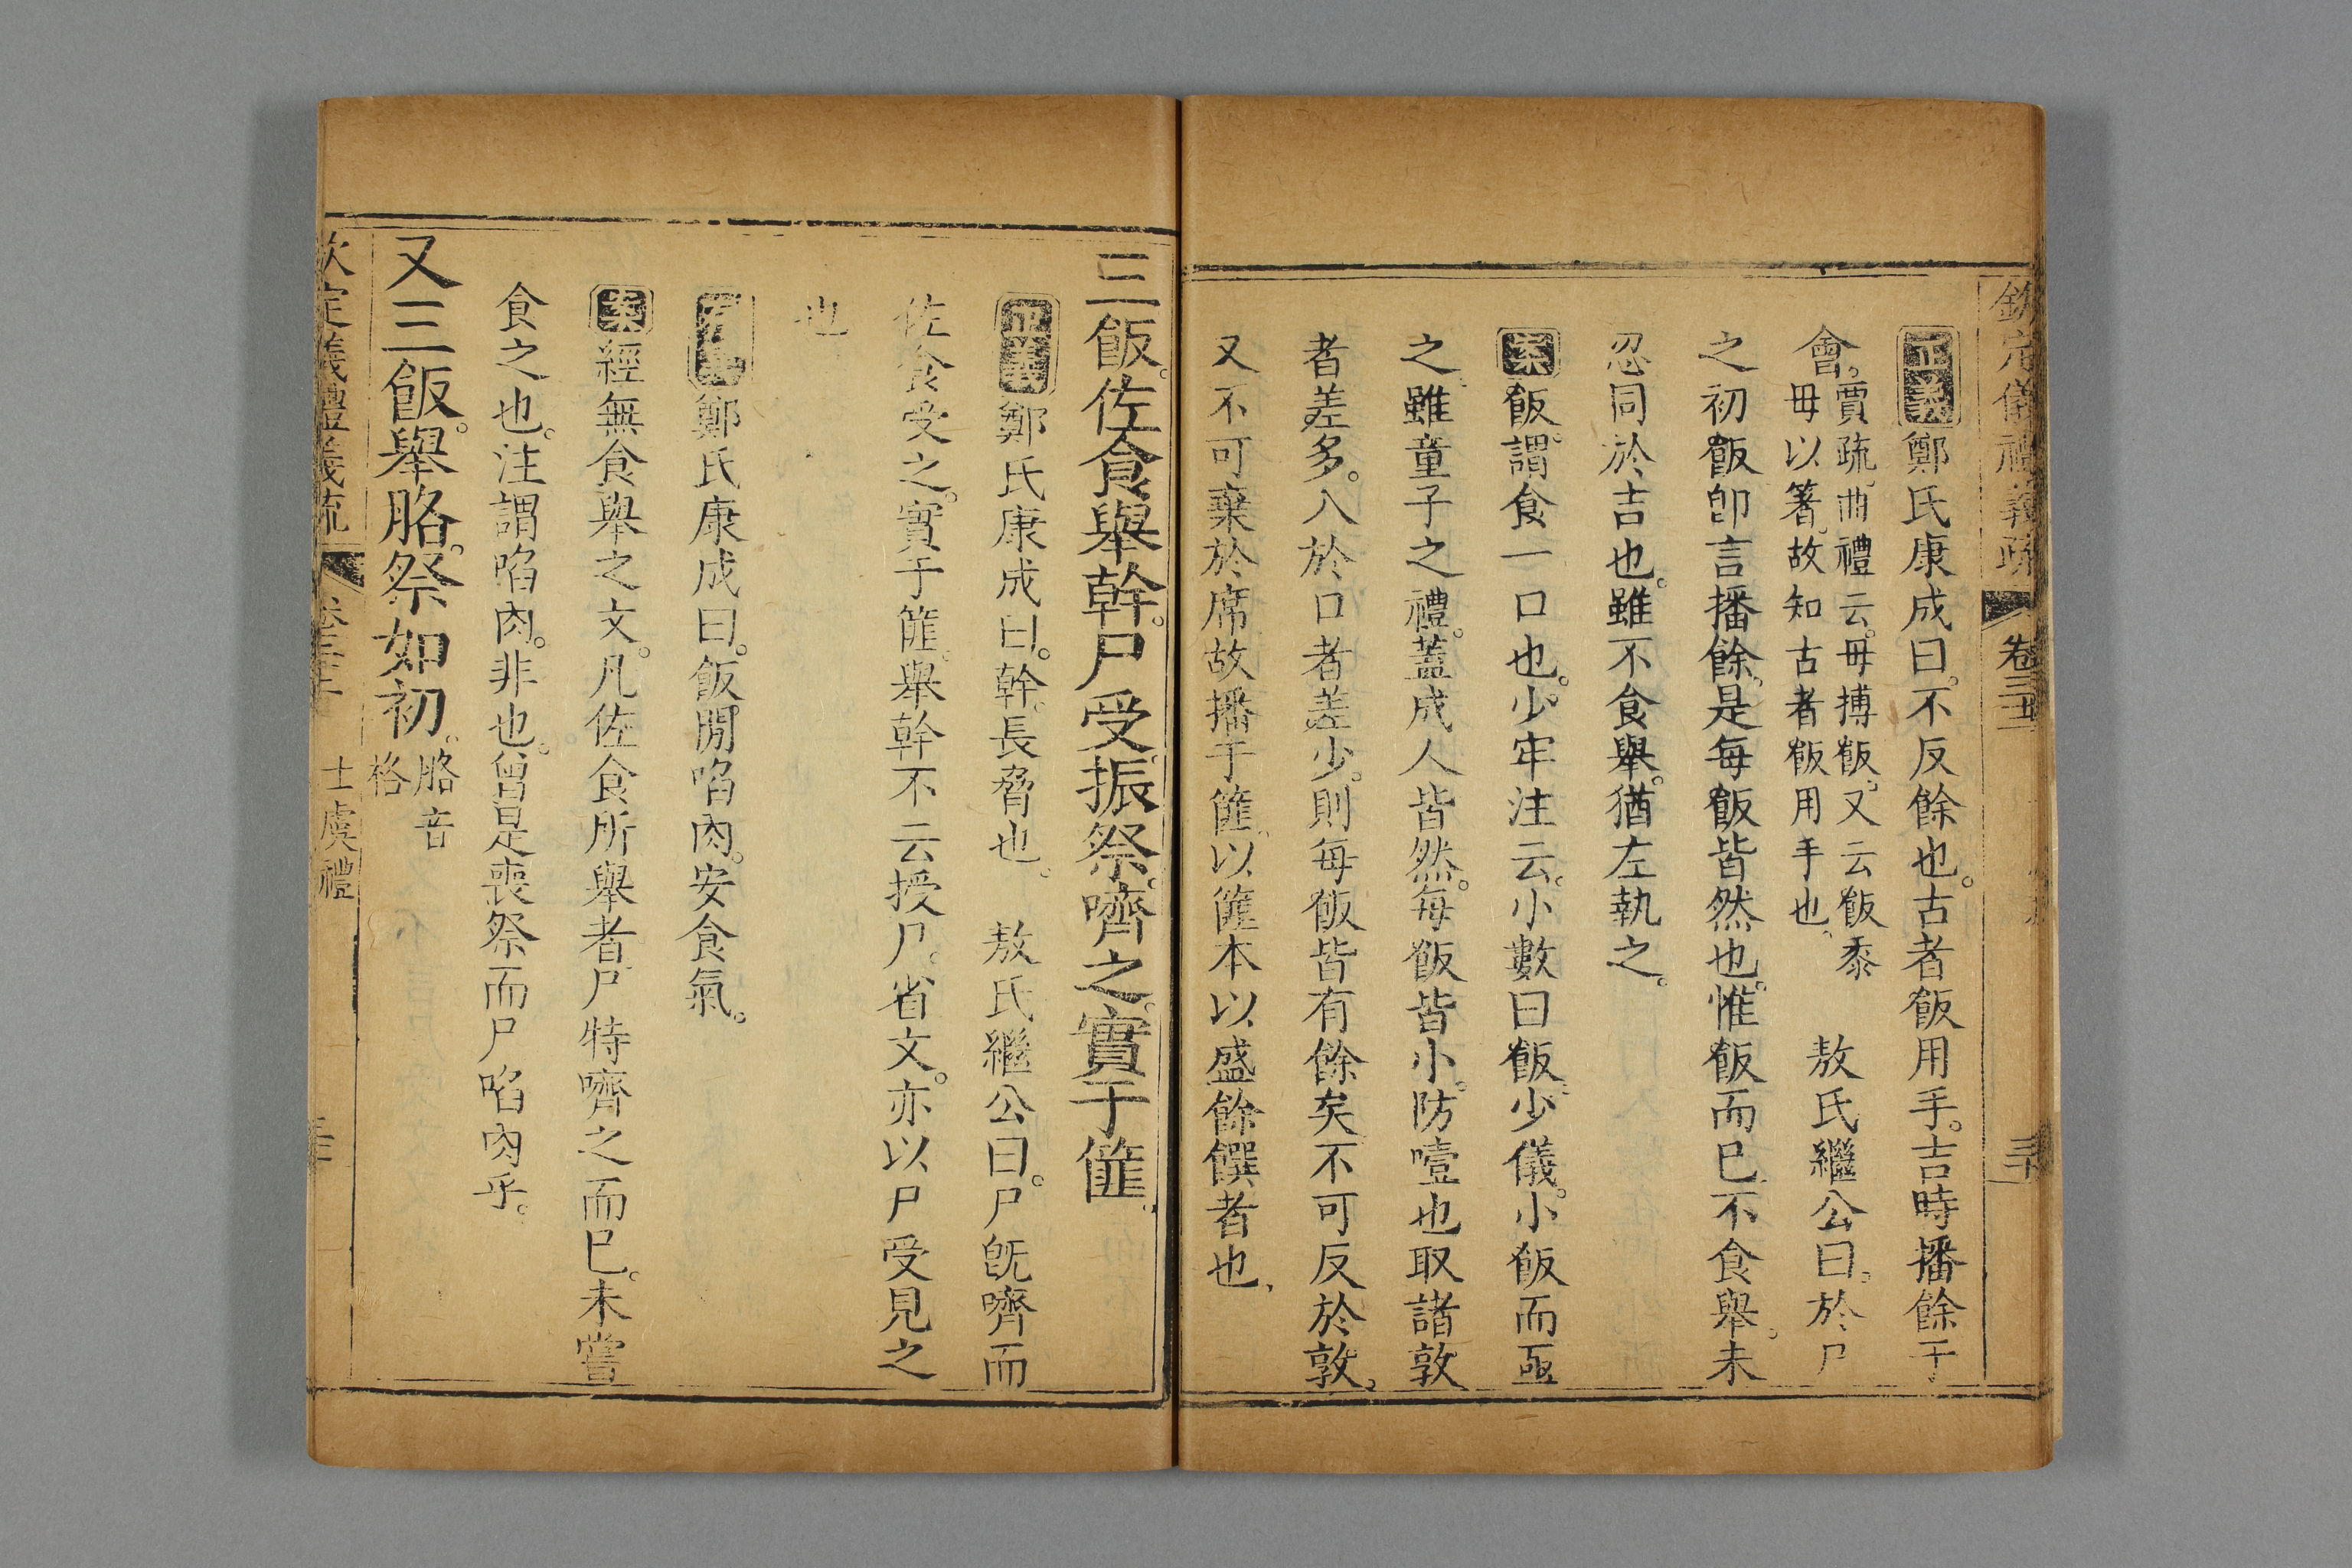 欽定儀禮義疏 卷三十三
正義鄭氏康成曰。不反餘也。古者飯用手。吉時播餘于
會。賈疏。曲禮云。毋摶飯。又云飯黍
毋以箸。故知古者飯用手也。 敖氏繼公曰。於尸
之初飯卽言播餘。是每飯皆然也。惟飯而已。不食舉。未
忍同於吉也。雖不食舉。猶左執之。
案飯。謂食一口也。少牢注云。小數曰飯。少儀。小飯而亟
之。雖童子之禮。蓋成人皆然。每飯皆小。防噎也。取諸敦
者差多。入於口者差少。則每飯皆有餘矣。不可反於敦。
又不可棄於席。故播于篚。以篚本以盛餘饌者也。
三飯。佐食舉幹。尸受振祭。嚌之。實于篚。
正義鄭氏康成曰。幹。長脅也。 敖氏繼公曰。尸旣嚌而
佐食受之。實于篚。舉幹不云授尸。省文。亦以尸受見之
也
鄭氏康成曰。飯閒啗肉。安食氣。
案經無食舉之文。凡佐食所舉者。尸特嚌之而已。未嘗
食之也。注謂啗肉。非也。曾是喪祭而尸啗肉乎。
又三飯。舉胳。祭如初。胳音
格
欽定儀禮義疏 卷三十三 士虞禮